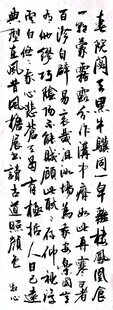 春院闃天黑牛驥同一皁雞棲鳳凰食
一朝蒙霧露分作溝中瘠如此再寒暑
百沴自辟易哀哉沮洳場為我安樂國豈
有他繆巧陰陽不能賊顧此耿耿在仰視浮
雲白悠悠我心悲蒼天曷有極哲人日已遠
典型在夙昔風檐展書讀古道照顏色